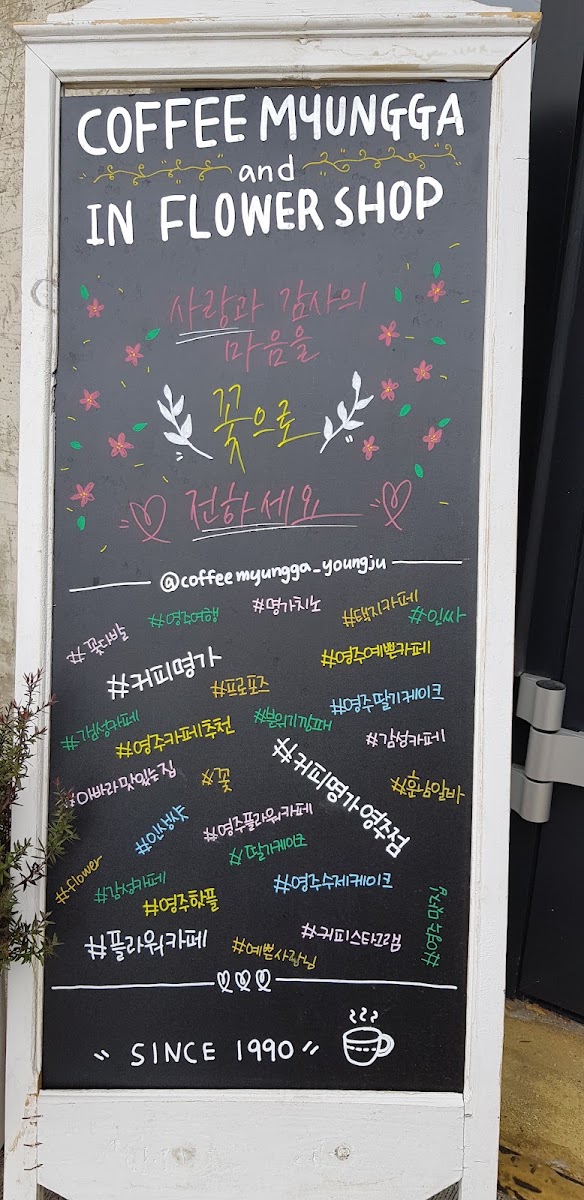 COFFEE MYUNGGA
and
IN FLOWER SHOP
사랑과 감사의
마음을
꽃으로
전하세요
@coffeemyungga_youngju
#꽃다발 #영주여행 #명가치노 #택지카페 #인싸
#커피명가 #프로포즈 #영주예쁜카페
#감성카페 #영주카페추천 #분위기깡패 #영주딸기케이크
#감성카페
#아빠라맛있는집 #꽃 #커피명가영주점 #훈남알바
#인생샷 #영주플라워카페
#딸기케이크
#flower #감성카페 #영주수제케이크
#영주핫플
#플라워카페 #예쁜사장님 #커피스타그램
SINCE 1990